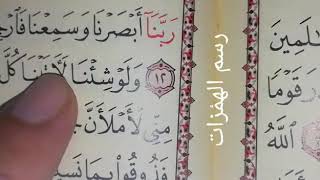 رَبَّنَآ أَبۡصَرۡنَا وَسَمِعۡنَا فَٱرۡجِ
١٢ وَلَوۡ شِئۡنَا لَأٓتَيۡنَا كُلَّ
مِنِّي لَأَمۡلَأَنَّ
فَذُوقُواْ بِمَا نَسِي
رسم الهمزات
لَمِينَ
قَوۡمٗا
ٱللَّهُ